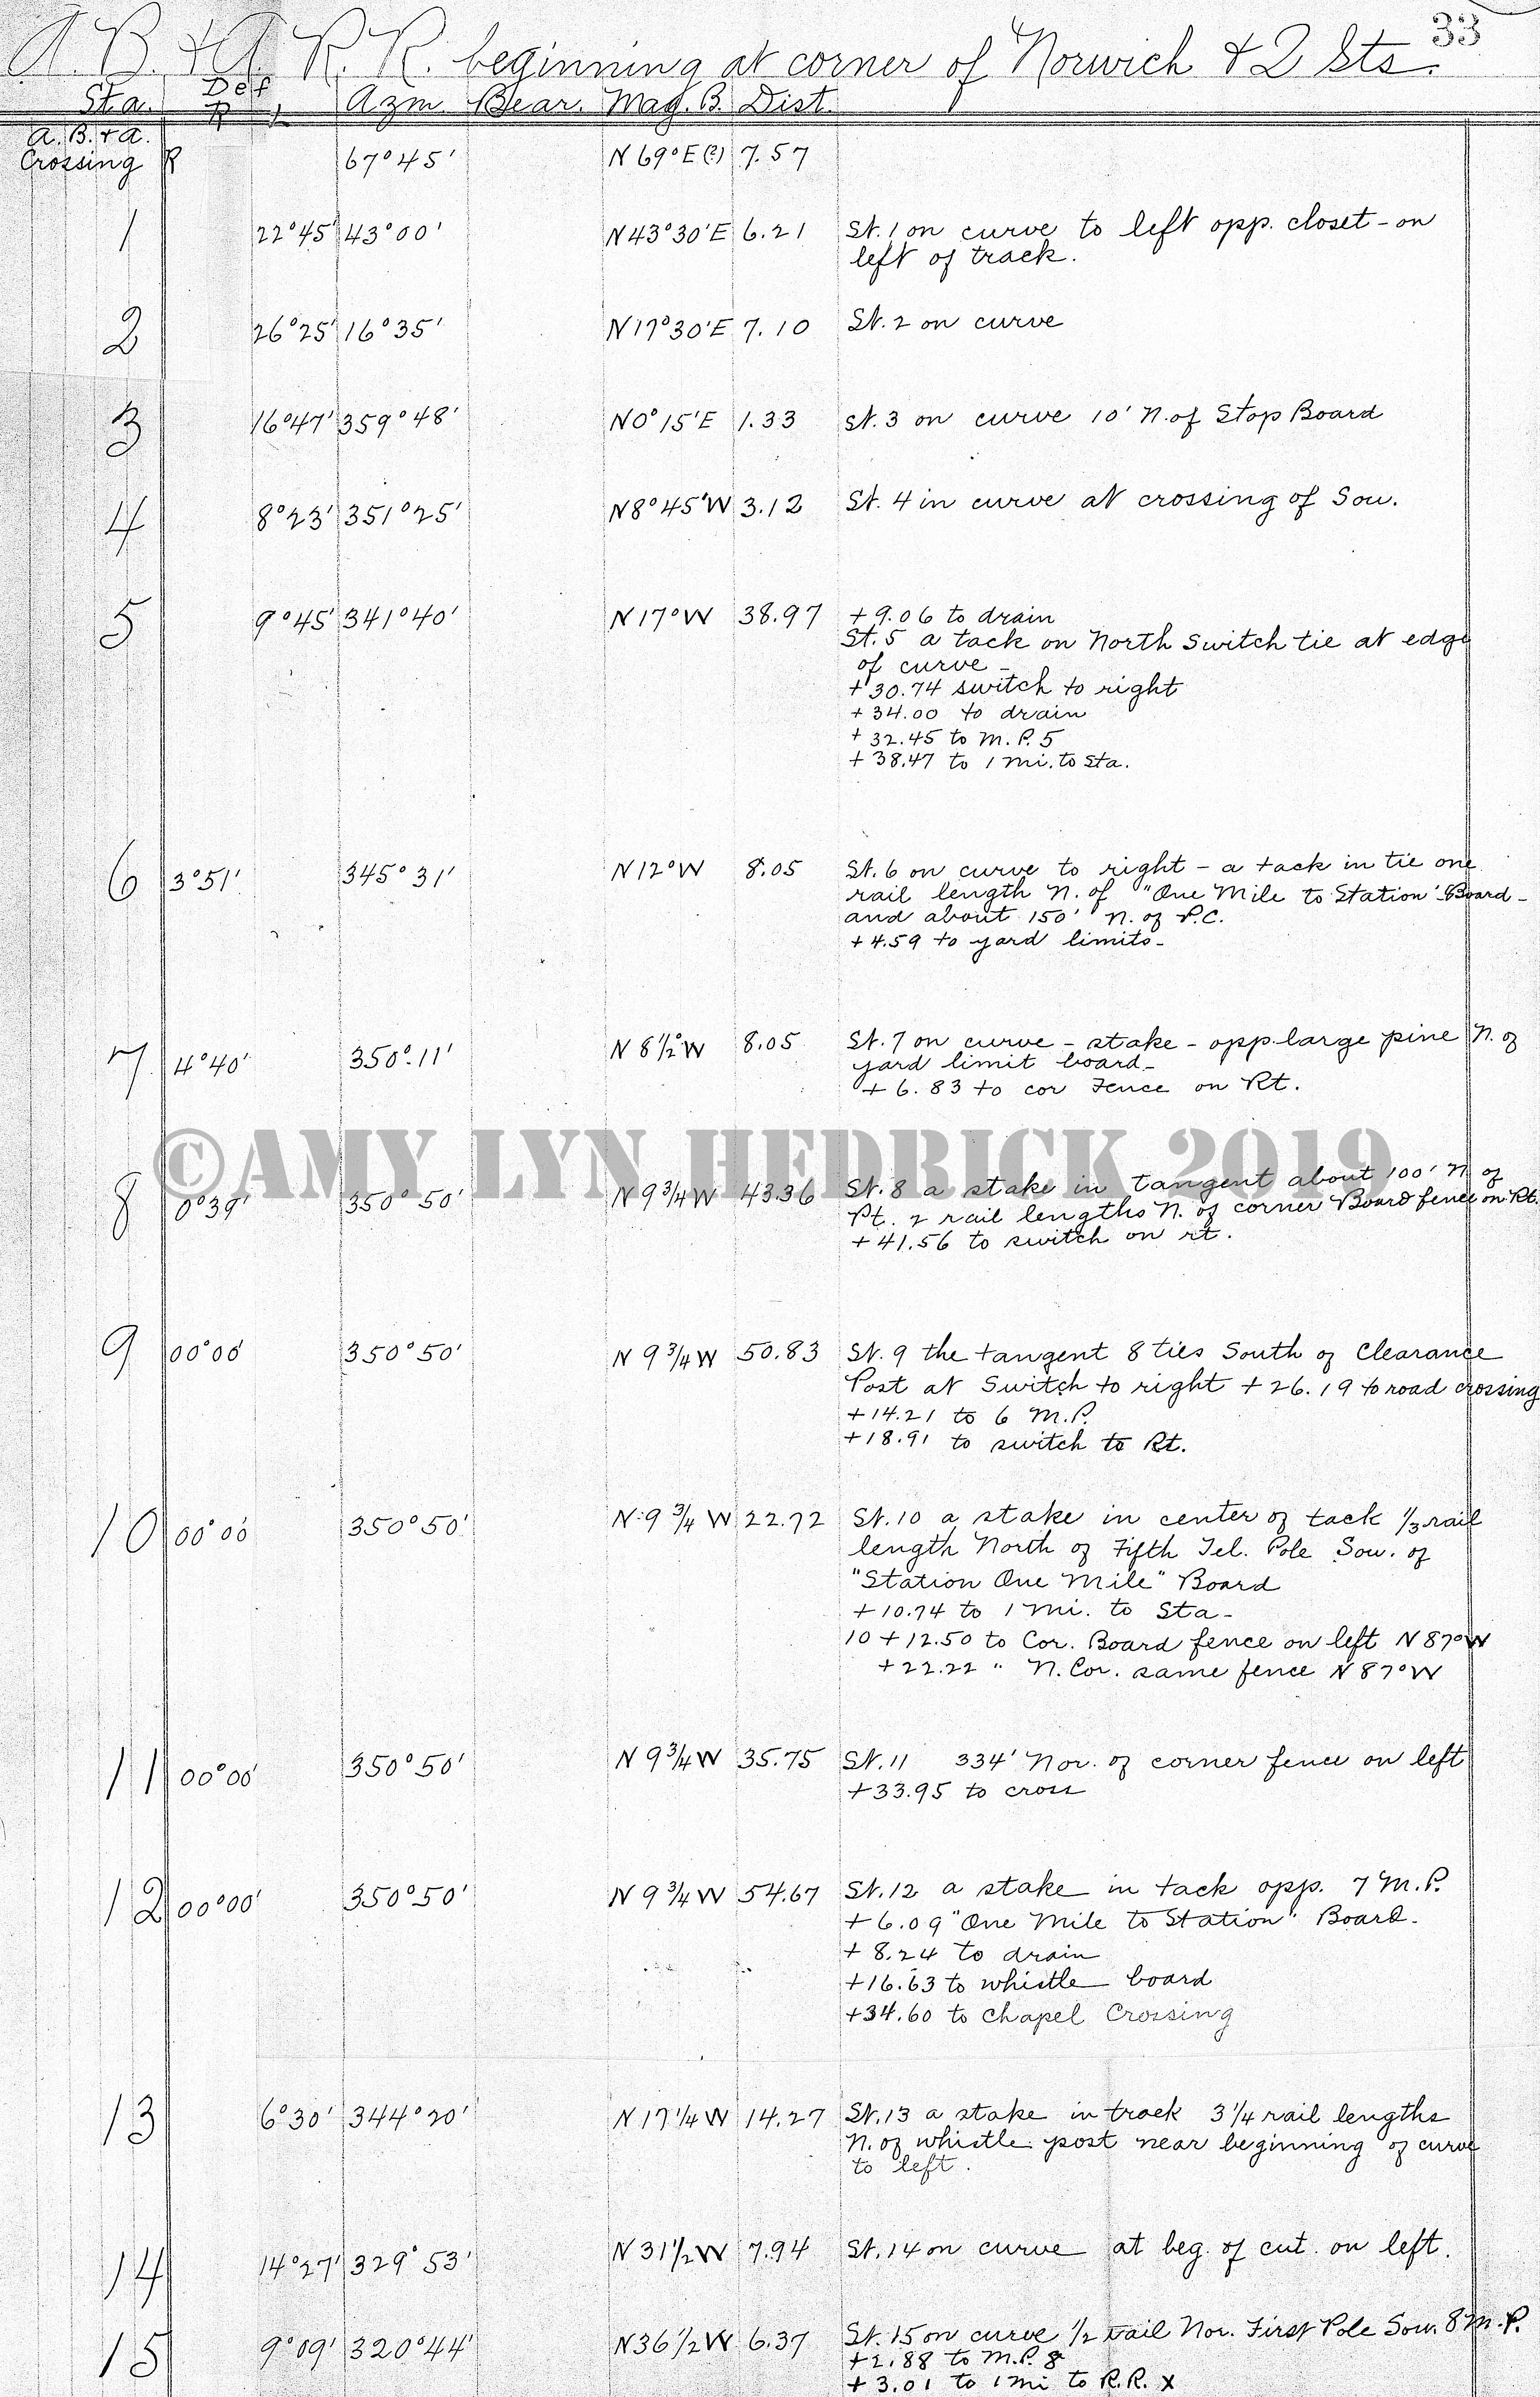 33
A. B. & A. R. R. beginning at corner of Norwich & 2 Sts.
Sta. Def R L Azm. Bear. Mag. B. Dist.
A. B. & A.
Crossing R 67°45' N 69°E (?) 7.57
1 22°45' 43°00' N43°30'E 6.21 St. 1 on curve to left opp. closet - on
left of track.
2 26°25' 16°35' N17°30'E 7.10 St. 2 on curve
3 16°47' 359°48' N0°15'E 1.33 St. 3 on curve 10' N. of Stop Board
4 8°23' 351°25' N8°45'W 3.12 St. 4 in curve at crossing of Sou.
5 9°45' 341°40' N17°W 38.97 + 9.06 to drain
St. 5 a tack on North Switch tie at edge
of curve -
+ 30.74 switch to right
+ 34.00 to drain
+ 32.45 to M. P. 5
+ 38.47 to 1 mi. to Sta.
6 3°51' 345°31' N12°W 8.05 St. 6 on curve to right - a tack in tie one
rail length N. of "One Mile to Station" Board -
and about 150' N. of P.C.
+ 4.59 to yard limits -
7 4°40' 350°11' N 8½°W 8.05 St. 7 on curve - stake - opp. large pine N. of
yard limit board -
+ 6.83 to cor Fence on Rt.
©AMY LYN HEDRICK 2019
8 0°39' 350°50' N 9¾ W 43.36 St. 8 a stake in tangent about 100' N. of
Pt. 2 rail lengths N. of corner Board fence on Rt.
+ 41.56 to switch on rt.
9 00°00' 350°50' N 9¾ W 50.83 St. 9 the tangent 8 ties South of Clearance
Post at Switch to right + 26.19 to road crossing
+ 14.21 to 6 M.P.
+ 18.91 to switch to Rt.
10 00°00' 350°50' N 9¾ W 22.72 St. 10 a stake in center of tack ⅓ rail
length North of Fifth Tel. Pole Sou. of
"Station One Mile" Board
+ 10.74 to 1 Mi. to Sta -
10 + 12.50 to Cor. Board fence on left N 87°W
+ 22.22 " N. Cor. same fence N 87°W
11 00°00' 350°50' N 9¾ W 35.75 St. 11 334' Nor. of corner fence on left
+ 33.95 to cross
12 00°00' 350°50' N 9¾ W 54.67 St. 12 a stake in tack opp. 7 M.P.
+ 6.09 "One Mile to Station" Board -
+ 8.24 to drain
+ 16.63 to whistle board
+ 34.60 to Chapel Crossing
13 6°30' 344°20' N 17¼ W 14.27 St. 13 a stake in track 3¼ rail lengths
N. of whistle post near beginning of curve
to left.
14 14°27' 329°53' N 31½ W 7.94 St. 14 on curve at beg. of cut on left.
15 9°09' 320°44' N 36½ W 6.37 St. 15 on curve ½ rail Nor. First Pole Sou. 8 M.P.
+ 2.88 to M.P. 8
+ 3.01 to 1 mi to R.R. X